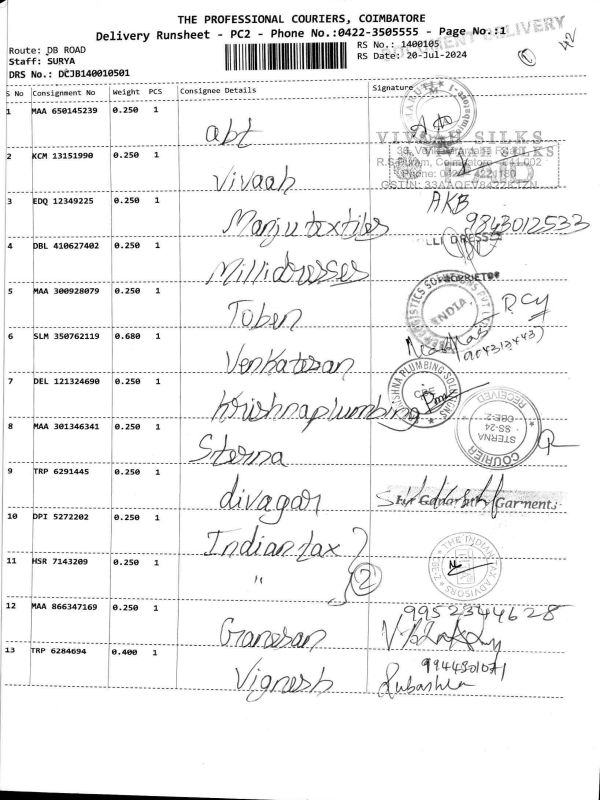 THE PROFESSIONAL COURIERS, COIMBATORE
Delivery Runsheet - PC2 - Phone No.:0422-3505555 - Page No.:1
Route: DB ROAD
RS No.: 1400105
DELIVERY
Staff: SURYA
RS Date: 20-Jul-2024
42
DRS No.: DCJB140010501
S No Consignment No Weight PCS Consignee Details Signature
1 MAA 650145239 0.250 1 abt
2 KCM 13151990 0.250 1 Vivaah
VIVAAH SILKS
3 EDQ 12349225 0.250 1 Manju textiles AKB
9843012533
4 DBL 410627402 0.250 1 Millidresses
PROPRIETOR
5 MAA 300928079 0.250 1 Toben
INDIA
RCY
6 SLM 350762119 0.680 1 Venkatesan
7 DEL 121324690 0.250 1 Krishnaplumbing
KRISHNA PLUMBING SOLUTIONS
CBE
8 MAA 301346341 0.250 1 Sterna
COURIER
RECEIVED
STERNA
SS-24
CBE-2
9 TRP 6291445 0.250 1 divagar
Garments
10 DPI 5272202 0.250 1 Indian tax
11 HSR 7143209 0.250 1 " 2
THE INDIAN TAX ADVISORS
12 MAA 866347169 0.250 1 Ganesan
9952344628
13 TRP 6284694 0.400 1 Vignesh